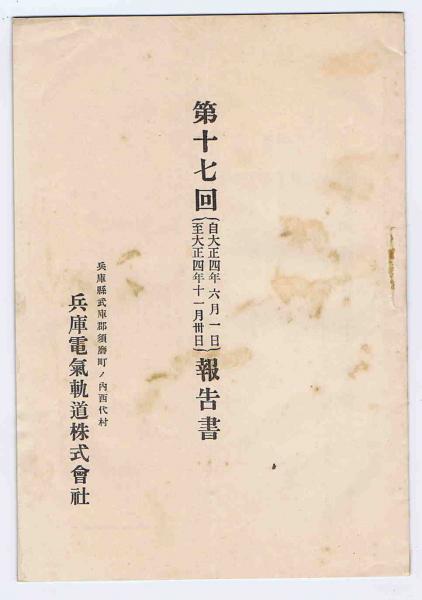 第十七回(自大正四年六月一日至大正四年十一月卅日)報告書
兵庫縣武庫郡須磨町ノ內西代村
兵庫電氣軌道株式會社